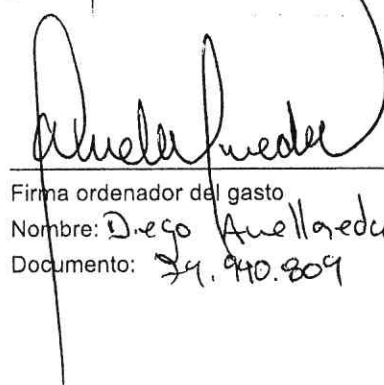 Firma ordenador del gasto
Nombre: Diego Avellaneda
Documento: 79.940.809